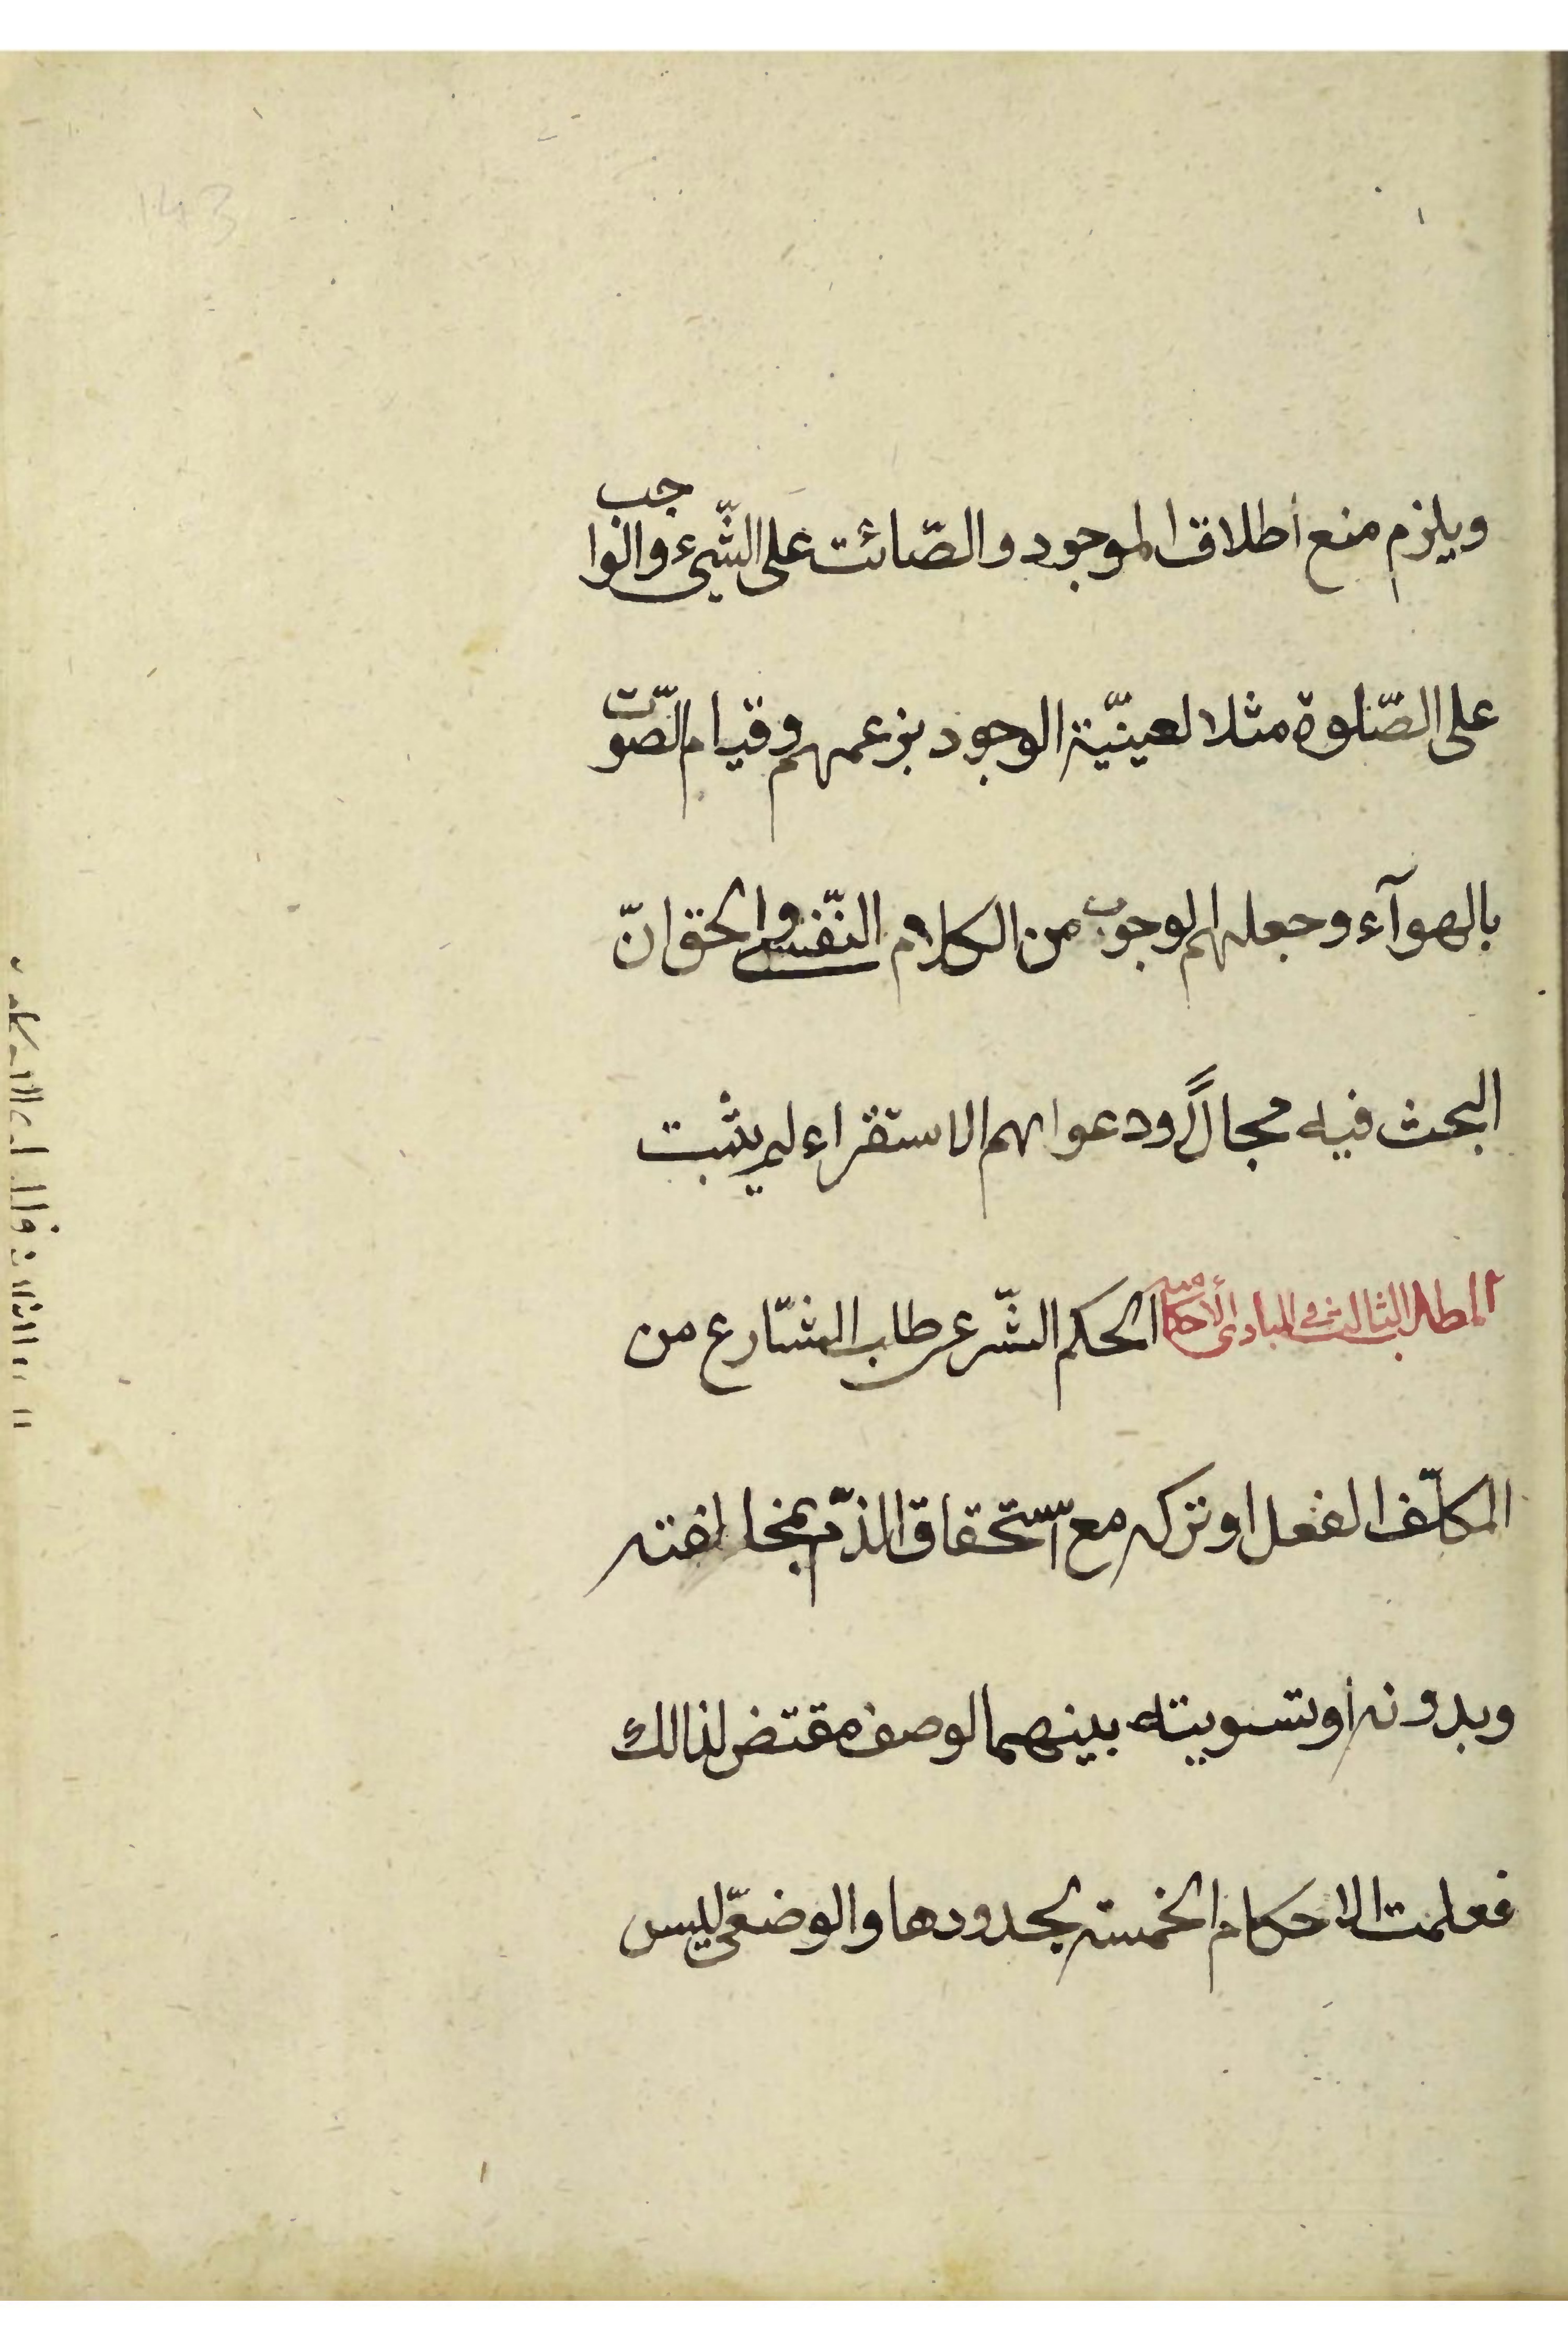 143
ويلزم منع أطلاق الموجود والصّائت على الشّيء والواجب
على الصّلوة مثلا لعينيّة الوجود بزعمهم وقيام الصّوت
بالهوآء وجعلهم الوجوب من الكلام النّفسي والحق انّ
البحث فيه مجالاً ودعواهم الاستقراء لم يثبت
المطلب الثالث في المبادى الأحكامية الحكم الشّرعي طلب الشّارع من
المكلّف الفعل او تركه مع استحقاق الذّم بمخالفته
وبدونه أو تسويته بينهما لوصف مقتض لذالك
فعلمت الاحكام الخمسة بحدودها والوضعّى ليس